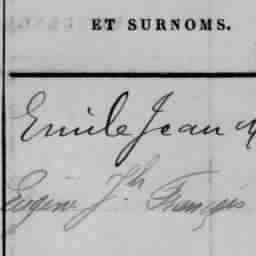 ET SURNOMS.
Emile Jean
Eugène Jh. François